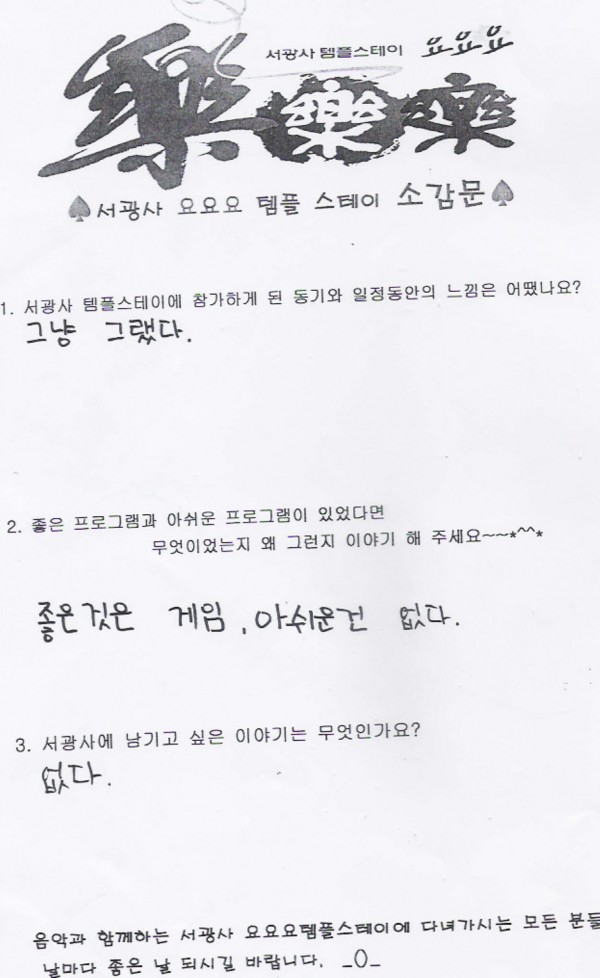 서광사 템플스테이 요요요
樂 樂 樂
♠서광사 요요요 템플 스테이 소감문♠
1. 서광사 템플스테이에 참가하게 된 동기와 일정동안의 느낌은 어땠나요?
그냥 그랬다.
2. 좋은 프로그램과 아쉬운 프로그램이 있었다면
무엇이었는지 왜 그런지 이야기 해 주세요~~*^^*
좋은것은 게임, 아쉬운건 없다.
3. 서광사에 남기고 싶은 이야기는 무엇인가요?
없다.
음악과 함께하는 서광사 요요요템플스테이에 다녀가시는 모든 분들
날마다 좋은 날 되시길 바랍니다. _O_